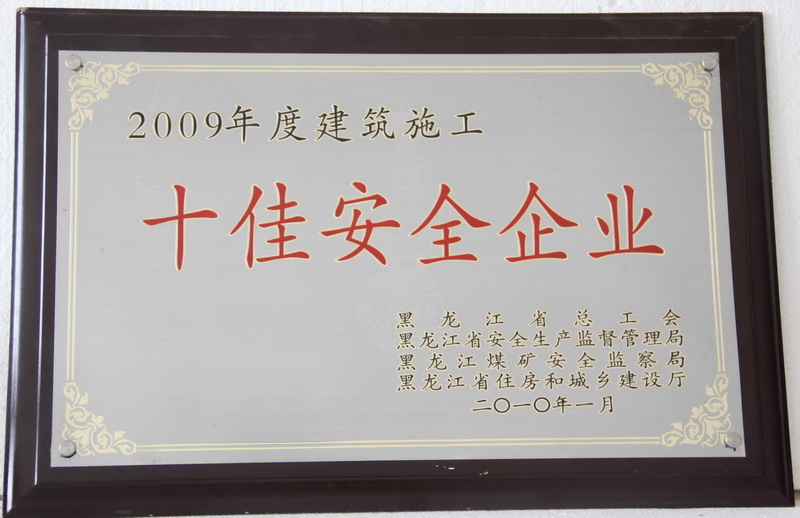 2009年度建筑施工
十佳安全企业
黑龙江省总工会
黑龙江省安全生产监督管理局
黑龙江煤矿安全监察局
黑龙江省住房和城乡建设厅
二〇一〇年一月